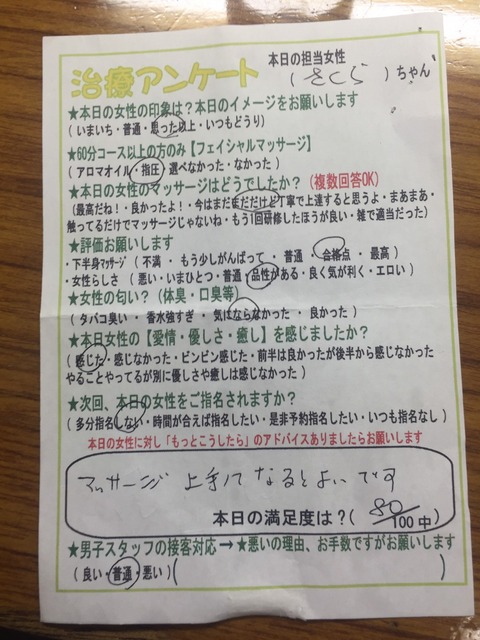 本日の担当女性
治療アンケート
(さくら)ちゃん
★本日の女性の印象は？本日のイメージをお願いします
(いまいち・普通・思った以上・いつもどうり)
★60分コース以上の方のみ【フェイシャルマッサージ】
(アロマオイル・指圧・選べなかった・なかった)
★本日の女性のマッサージはどうでしたか？(複数回答OK)
(最高だね！・良かったよ！・今はまだまだだけど丁寧で上達すると思うよ・まあまあ・
触ってるだけでマッサージじゃないね・もう1回研修したほうが良い・雑で適当だった)
★評価お願いします
・下半身マッサージ(不満・もう少しがんばって・普通・合格点・最高)
・女性らしさ(悪い・いまひとつ・普通・品性がある・良く気が利く・エロい)
★女性の匂い？(体臭・口臭等)
(タバコ臭い・香水強すぎ・気にならなかった・良かった)
★本日女性の【愛情・優しさ・癒し】を感じましたか？
(感じた・感じなかった・ビンビン感じた・前半は良かったが後半から感じなかった
やることやってるが別に優しさや癒しは感じなかった)
★次回、本日の女性をご指名されますか？
(多分指名しない・時間が合えば指名したい・是非予約指名したい・いつも指名なし)
本日の女性に対し「もっとこうしたら」のアドバイスありましたらお願いします
マッサージ 上手くなるとよいです
本日の満足度は？(80/100中)
★男子スタッフの接客対応→★悪いの理由、お手数ですがお願いします
(良い・普通・悪い)( )